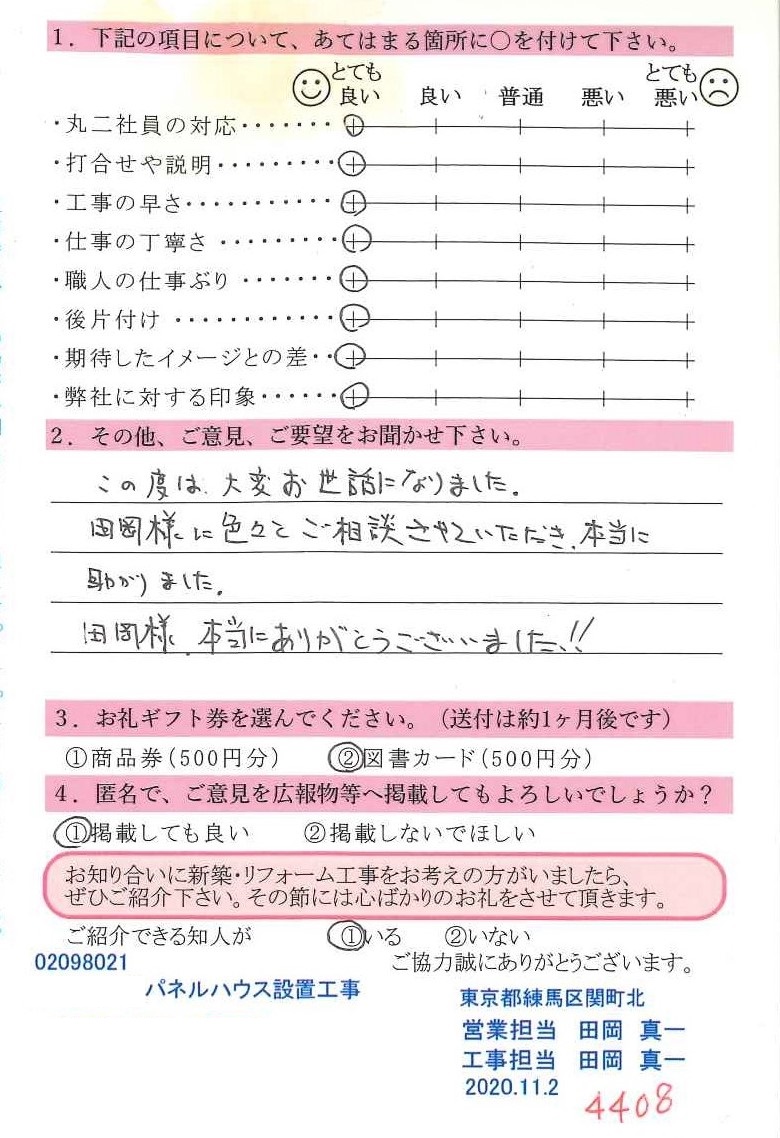 1．下記の項目について、あてはまる箇所に○を付けて下さい。
とても良い 良い 普通 悪い とても悪い
・丸二社員の対応・・・・・・・
・打合せや説明・・・・・・・・・
・工事の早さ・・・・・・・・・・・
・仕事の丁寧さ・・・・・・・・・
・職人の仕事ぶり・・・・・・・
・後片付け・・・・・・・・・・・・
・期待したイメージとの差・・
・弊社に対する印象・・・・・・
2．その他、ご意見、ご要望をお聞かせ下さい。
この度は、大変お世話になりました。
田岡様に色々とご相談させていただき、本当に
助かりました。
田岡様、本当にありがとうございました!!
3．お礼ギフト券を選んでください。（送付は約1ヶ月後です）
①商品券(500円分) ②図書カード(500円分)
4．匿名で、ご意見を広報物等へ掲載してもよろしいでしょうか？
①掲載しても良い ②掲載しないでほしい
お知り合いに新築・リフォーム工事をお考えの方がいましたら、
ぜひご紹介下さい。その節には心ばかりのお礼をさせて頂きます。
ご紹介できる知人が ①いる ②いない
02098021 ご協力誠にありがとうございます。
パネルハウス設置工事
東京都練馬区関町北
営業担当 田岡 真一
工事担当 田岡 真一
2020.11.2
4408